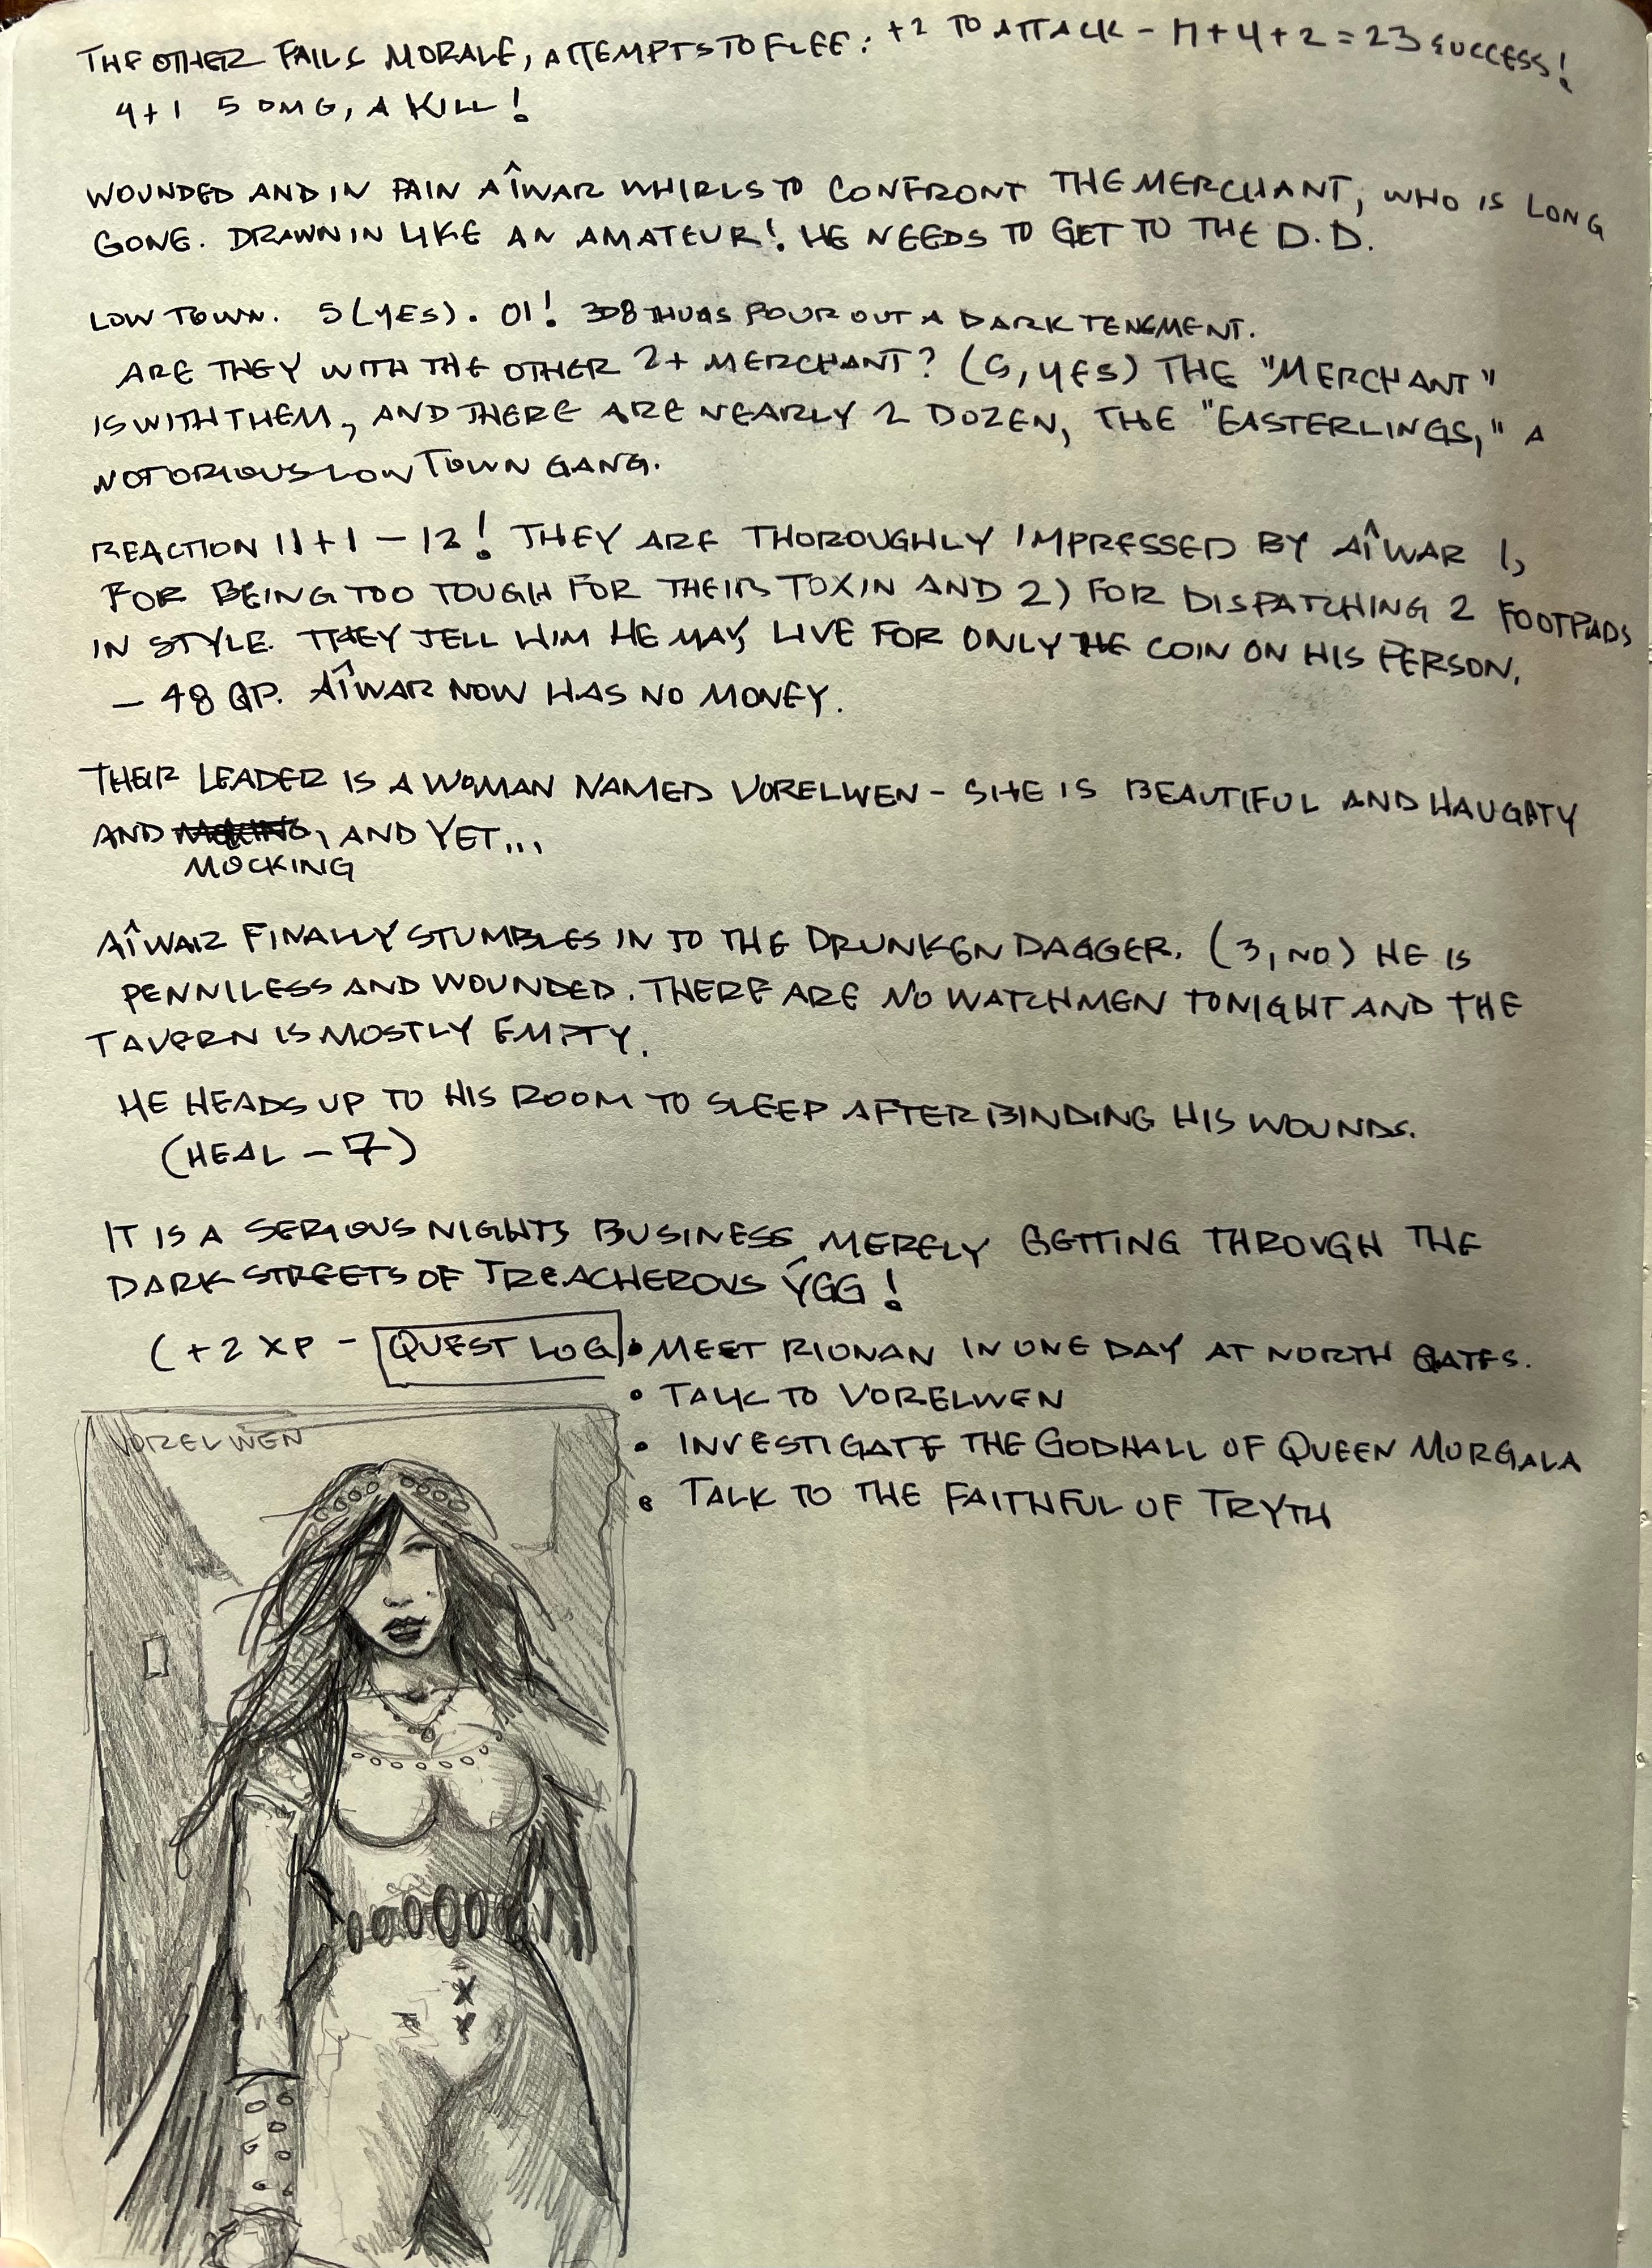 THE OTHER FAILS MORALE, ATTEMPTS TO FLEE: +2 TO ATTACK - 17+4+2 = 23 SUCCESS!
4+1 5 DMG, A KILL!
WOUNDED AND IN PAIN AÎWAR WHIRLS TO CONFRONT THE MERCHANT, WHO IS LONG
GONE. DRAWN IN LIKE AN AMATEUR! HE NEEDS TO GET TO THE D.D.
LOW TOWN. 5 (YES). 01! 3D8 THUGS POUR OUT A DARK TENEMENT.
ARE THEY WITH THE OTHER 2+ MERCHANT? (5, YES) THE "MERCHANT"
IS WITH THEM, AND THERE ARE NEARLY 2 DOZEN, THE "EASTERLINGS," A
NOTORIOUS LOW TOWN GANG.
REACTION 11+1 - 12! THEY ARE THOROUGHLY IMPRESSED BY AÎWAR 1,
FOR BEING TOO TOUGH FOR THEIR TOXIN AND 2) FOR DISPATCHING 2 FOOTPADS
IN STYLE. THEY TELL HIM HE MAY LIVE FOR ONLY THE COIN ON HIS PERSON,
- 48 GP. AÎWAR NOW HAS NO MONEY.
THEIR LEADER IS A WOMAN NAMED VORELWEN - SHE IS BEAUTIFUL AND HAUGHTY
AND MOCKING, AND YET...
MOCKING
AÎWAR FINALLY STUMBLES IN TO THE DRUNKEN DAGGER. (3, NO) HE IS
PENNILESS AND WOUNDED. THERE ARE NO WATCHMEN TONIGHT AND THE
TAVERN IS MOSTLY EMPTY.
HE HEADS UP TO HIS ROOM TO SLEEP AFTER BINDING HIS WOUNDS.
(HEAL - 7)
IT IS A SERIOUS NIGHTS BUSINESS MERELY GETTING THROUGH THE
DARK STREETS OF TREACHEROUS ÝGG!
(+2 XP - QUEST LOG • MEET RIONAN IN ONE DAY AT NORTH GATES.
• TALK TO VORELWEN
• INVESTIGATE THE GODHALL OF QUEEN MORGALA
• TALK TO THE FAITHFUL OF TRYTH
VORELWEN